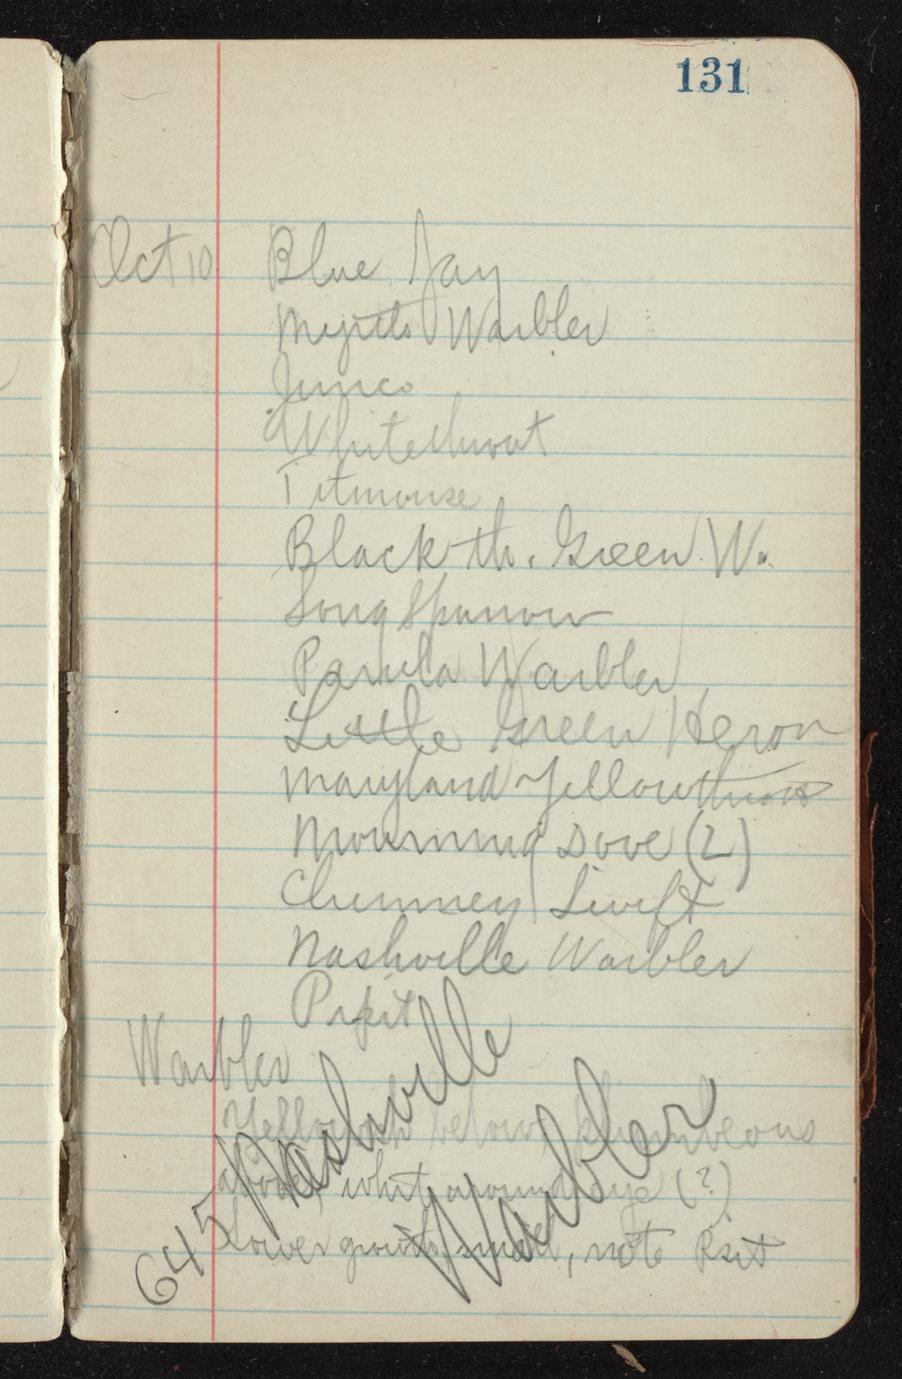 131
Oct 10 Blue Jay
Myrtle Warbler
Junco
Whitethroat
Titmouse
Black th. Green W.
Song Sparrow
Parula Warbler
Little Green Heron
Maryland Yellowthroat
Mourning Dove (2)
Chimney Swift
Nashville Warbler
Pipit
Warbler
Yellowish below,
above, whit around eye (?)
Lower growth, note Psit
645 Nashville Warbler